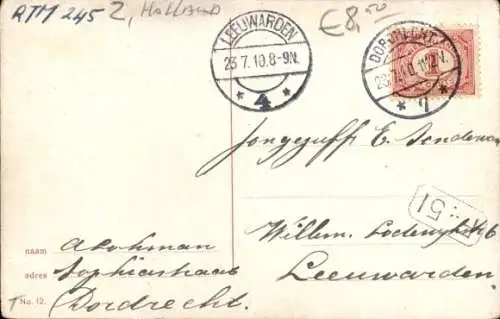 RTM 245 Z, HOLLAND
€8,50
LEEUWARDEN
23.7.10.8-9N.
* 4 *
DORDRECHT
* 7 *
Jongejuffr E.
51
Willem Lodewijkstr 6
Leeuwarden.
naam
adres Sophiastraat
No. 12. Dordrecht.